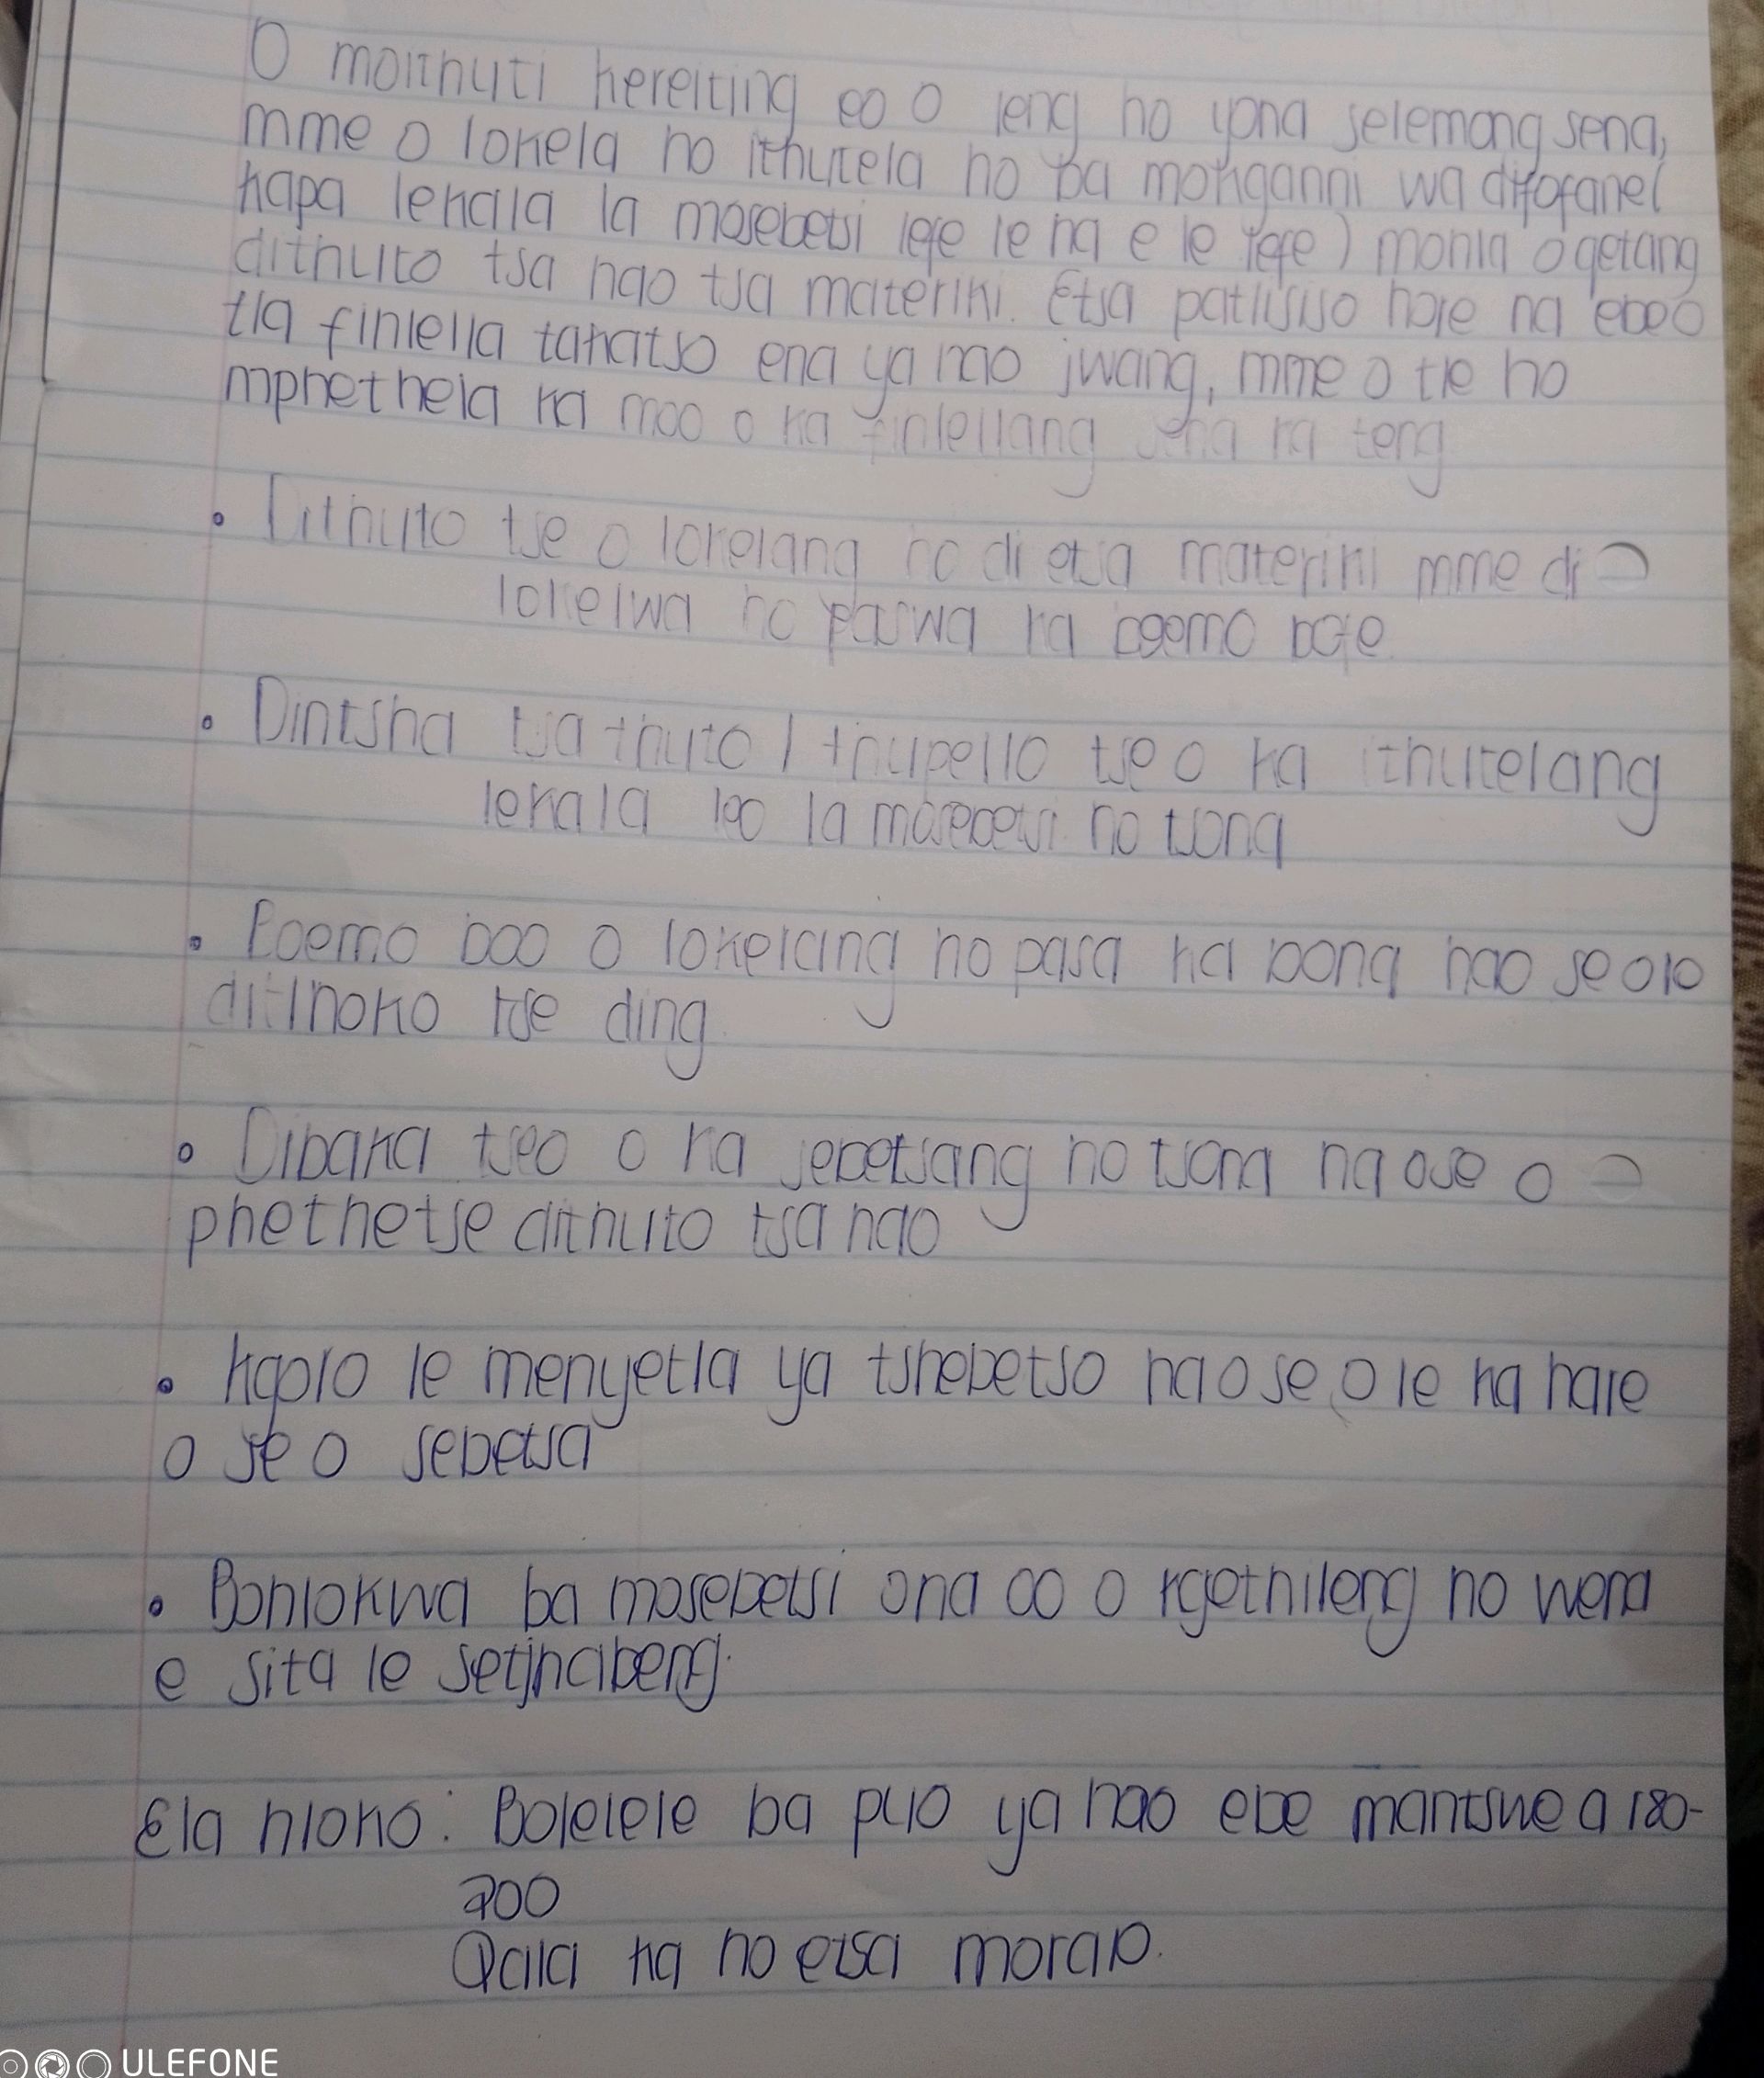 O moithuti kereiting eo o leng ho yona selemong sena,
mme o lokela ho ithutela ho ba mokganni wa difofane(
kapa lekala la mosebetsi lefe le ha e le lefe) mohla o qetang
dithuto tsa hao tsa materiki. Etsa patlisiso hore na ebe o
tla finlella takatso ena ya hao jwang, mme o tle ho
mphethela ka moo o ka finlellang sena ka teng
• Dithuto tse o lokelang ho di etsa materiki mme di
lokelwa ho paswa ka boemo bofe.
• Dintsha tsa thuto / thupello tse o ka ithutelang
lekala leo la mosebetsi ho tsona
• Boemo boo o lokelang ho pasa ka bona hao se o le
ditlhoko tse ding.
• Dibaka tseo o ka sebetsang ho tsona ha o se o
phethetse dithuto tsa hao
• Kgolo le menyetla ya tshebetso ha o se o le ka hare
o se o sebetsa
• Bohlokwa ba mosebetsi ona oo o kgethileng ho wena
e sita le setjhabeng.
Ela hloko: Bolelele ba puo ya hao ebe mantswe a 180-
200
Qala ka ho etsa moralo.
ULEFONE